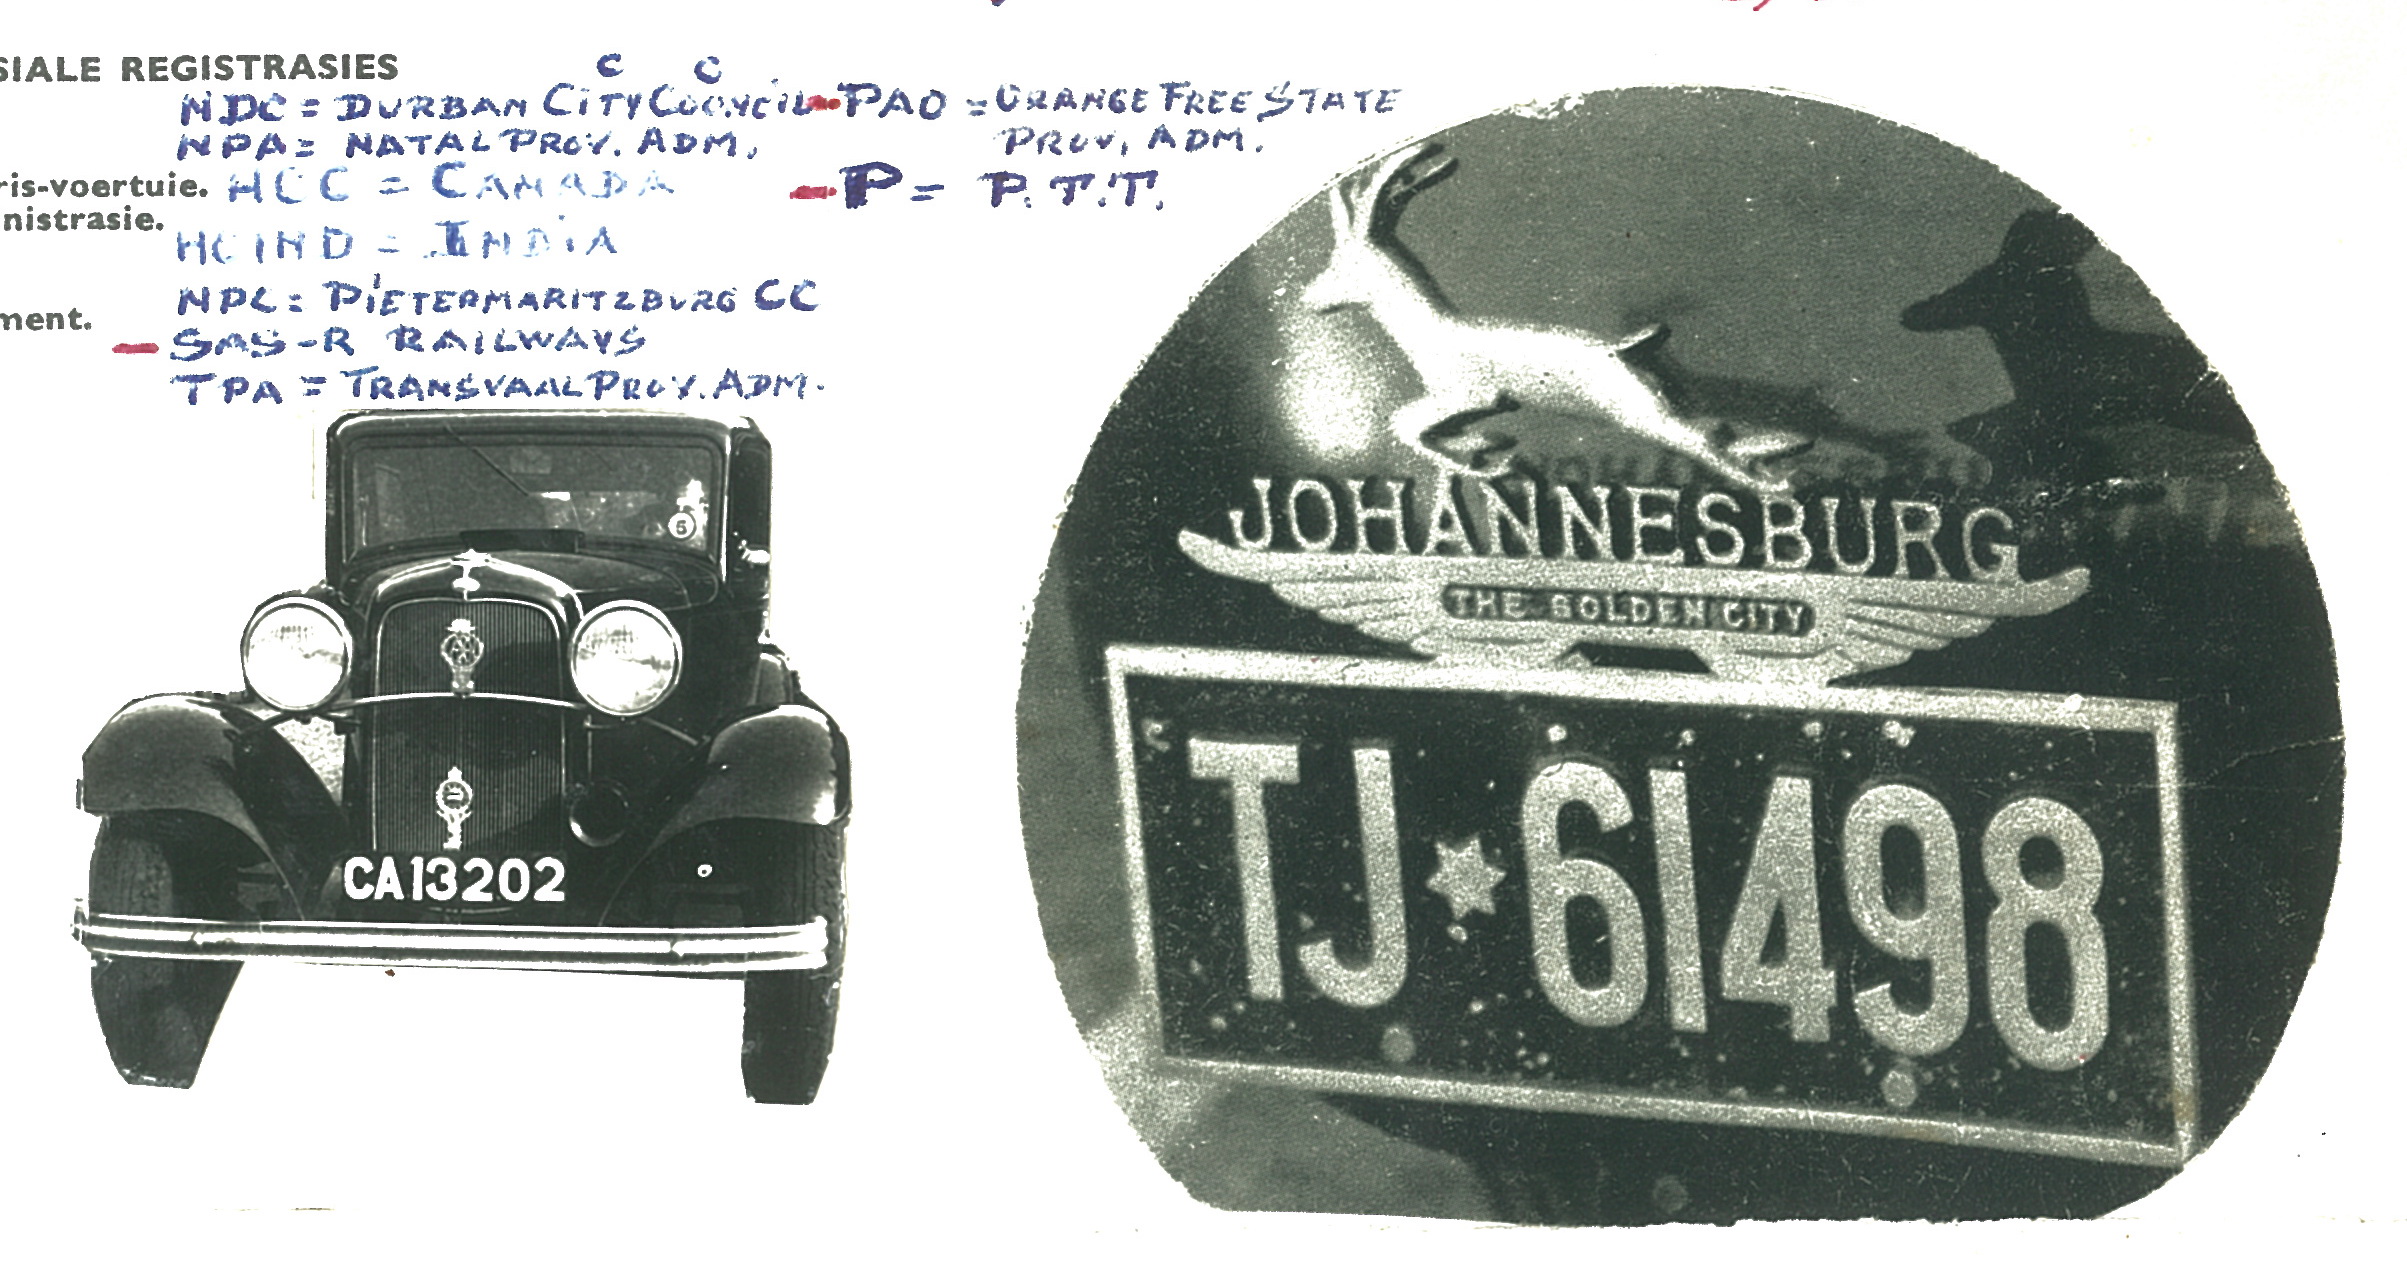 SIALE REGISTRASIES
C C
NDC = DURBAN CITY COUNCIL - PAO = ORANGE FREE STATE
NPA = NATAL PROV. ADM. PROV. ADM.
ris-voertuie. HCC = CANADA - P = P.T.T.
nistrasie.
HCIND = INDIA
NPC = PIETERMARITZBURG CC
ment.
- SAS-R RAILWAYS
TPA = TRANSVAAL PROV. ADM.
5
CA13202
JOHANNESBURG
THE GOLDEN CITY
TJ 61498